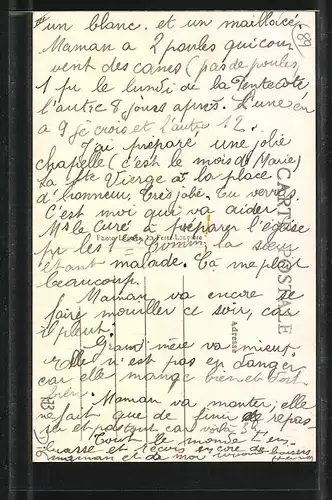 III
un blanc. et un
Maman a 2 poules qui cou
vent des canes (pas de poules)
1 pr le lundi de la Pentecôte
l'autre 8 jours après. L'une en
a 9 je crois et l'autre 12.
J'ai préparé une jolie
chapelle (c'est le mois de Marie)
La Ste Vierge a la place
d'honneur. Tu verras.
C'est moi qui va aider
Mr le Curé à préparer l'église
pr les 1 la sœur
étant malade. Ça me plait
beaucoup.
Maman va encore se
faire mouiller ce soir, car
il pleut.
Grand'mère va mieux
Elle n'est pas en danger
car elle mange bien et dort
bien.
Maman va monter; elle
ne fait que de finir de repas-
ser et partout car voilà 3h
Tout le monde t'em-
brasse et reçois encore de
maman et de moi
CARTE POSTALE
Adresse
89